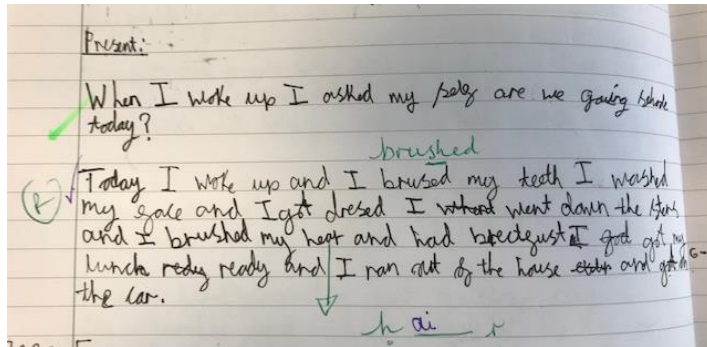 Present:
When I woke up I asked my self are we gowing
today?
brushed
Today I woke up and I brused my teeth I washed
my face and I got dresed I went down the sters
and I brushed my hear and had brecfust I got my
lunch redy ready and I ran out of the house and got in
the car.
h ai r